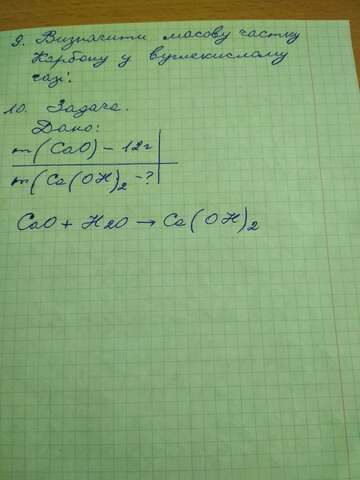 9. Визначити масову частку
Карбону у вуглекислому
газі.
10. Задача.
Дано:
m(CaO) - 12г
m(Ca(OH)2 -?
CaO + H2O → Ca(OH)2